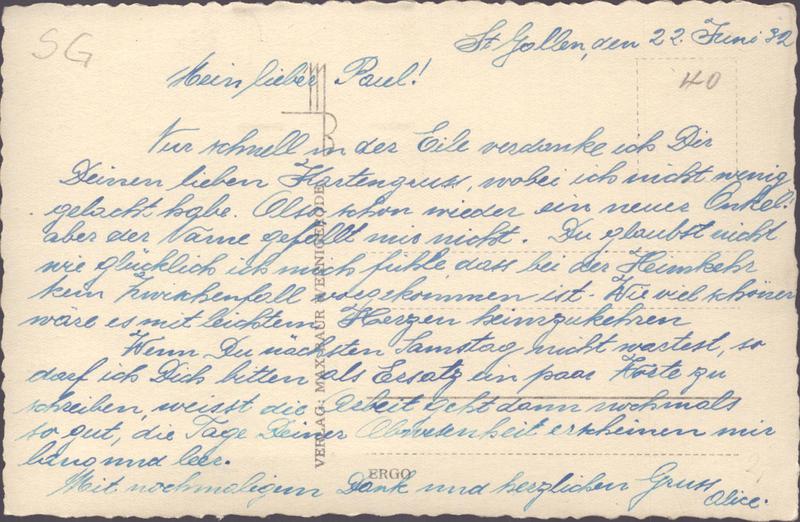 SG
St. Gallen, den 22. Juni 32
40
Mein lieber Paul!
Nur schnell in der Eile verdanke ich Dir
Deinen lieben Kartengruss, wobei ich nicht wenig
gelacht habe. Also schon wieder ein neuer Onkel!
aber der Name gefällt mir nicht. Du glaubst nicht
wie glücklich ich mich fühle, dass bei der Heimkehr
kein Zwischenfall vorgekommen ist. Wie viel schöner
wäre es mit leichtem Herzen heimzukehren
Wenn Du nächsten Samstag nicht wartest, so
darf ich Dich bitten als Ersatz ein paar Worte zu
schreiben, weisst die Arbeit geht dann nochmals
so gut, die Tage Deiner Abwesenheit erscheinen mir
lang und leer.
Mit nochmaligem Dank und herzlichen Gruss
Alice.
VERLAG: MAX BAUR WERNIGERODE
ERGO